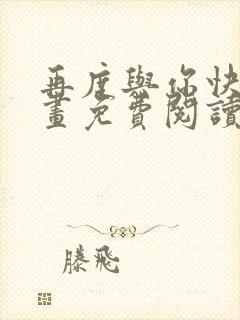 再度與你快
畫免費閱讀
滕飛